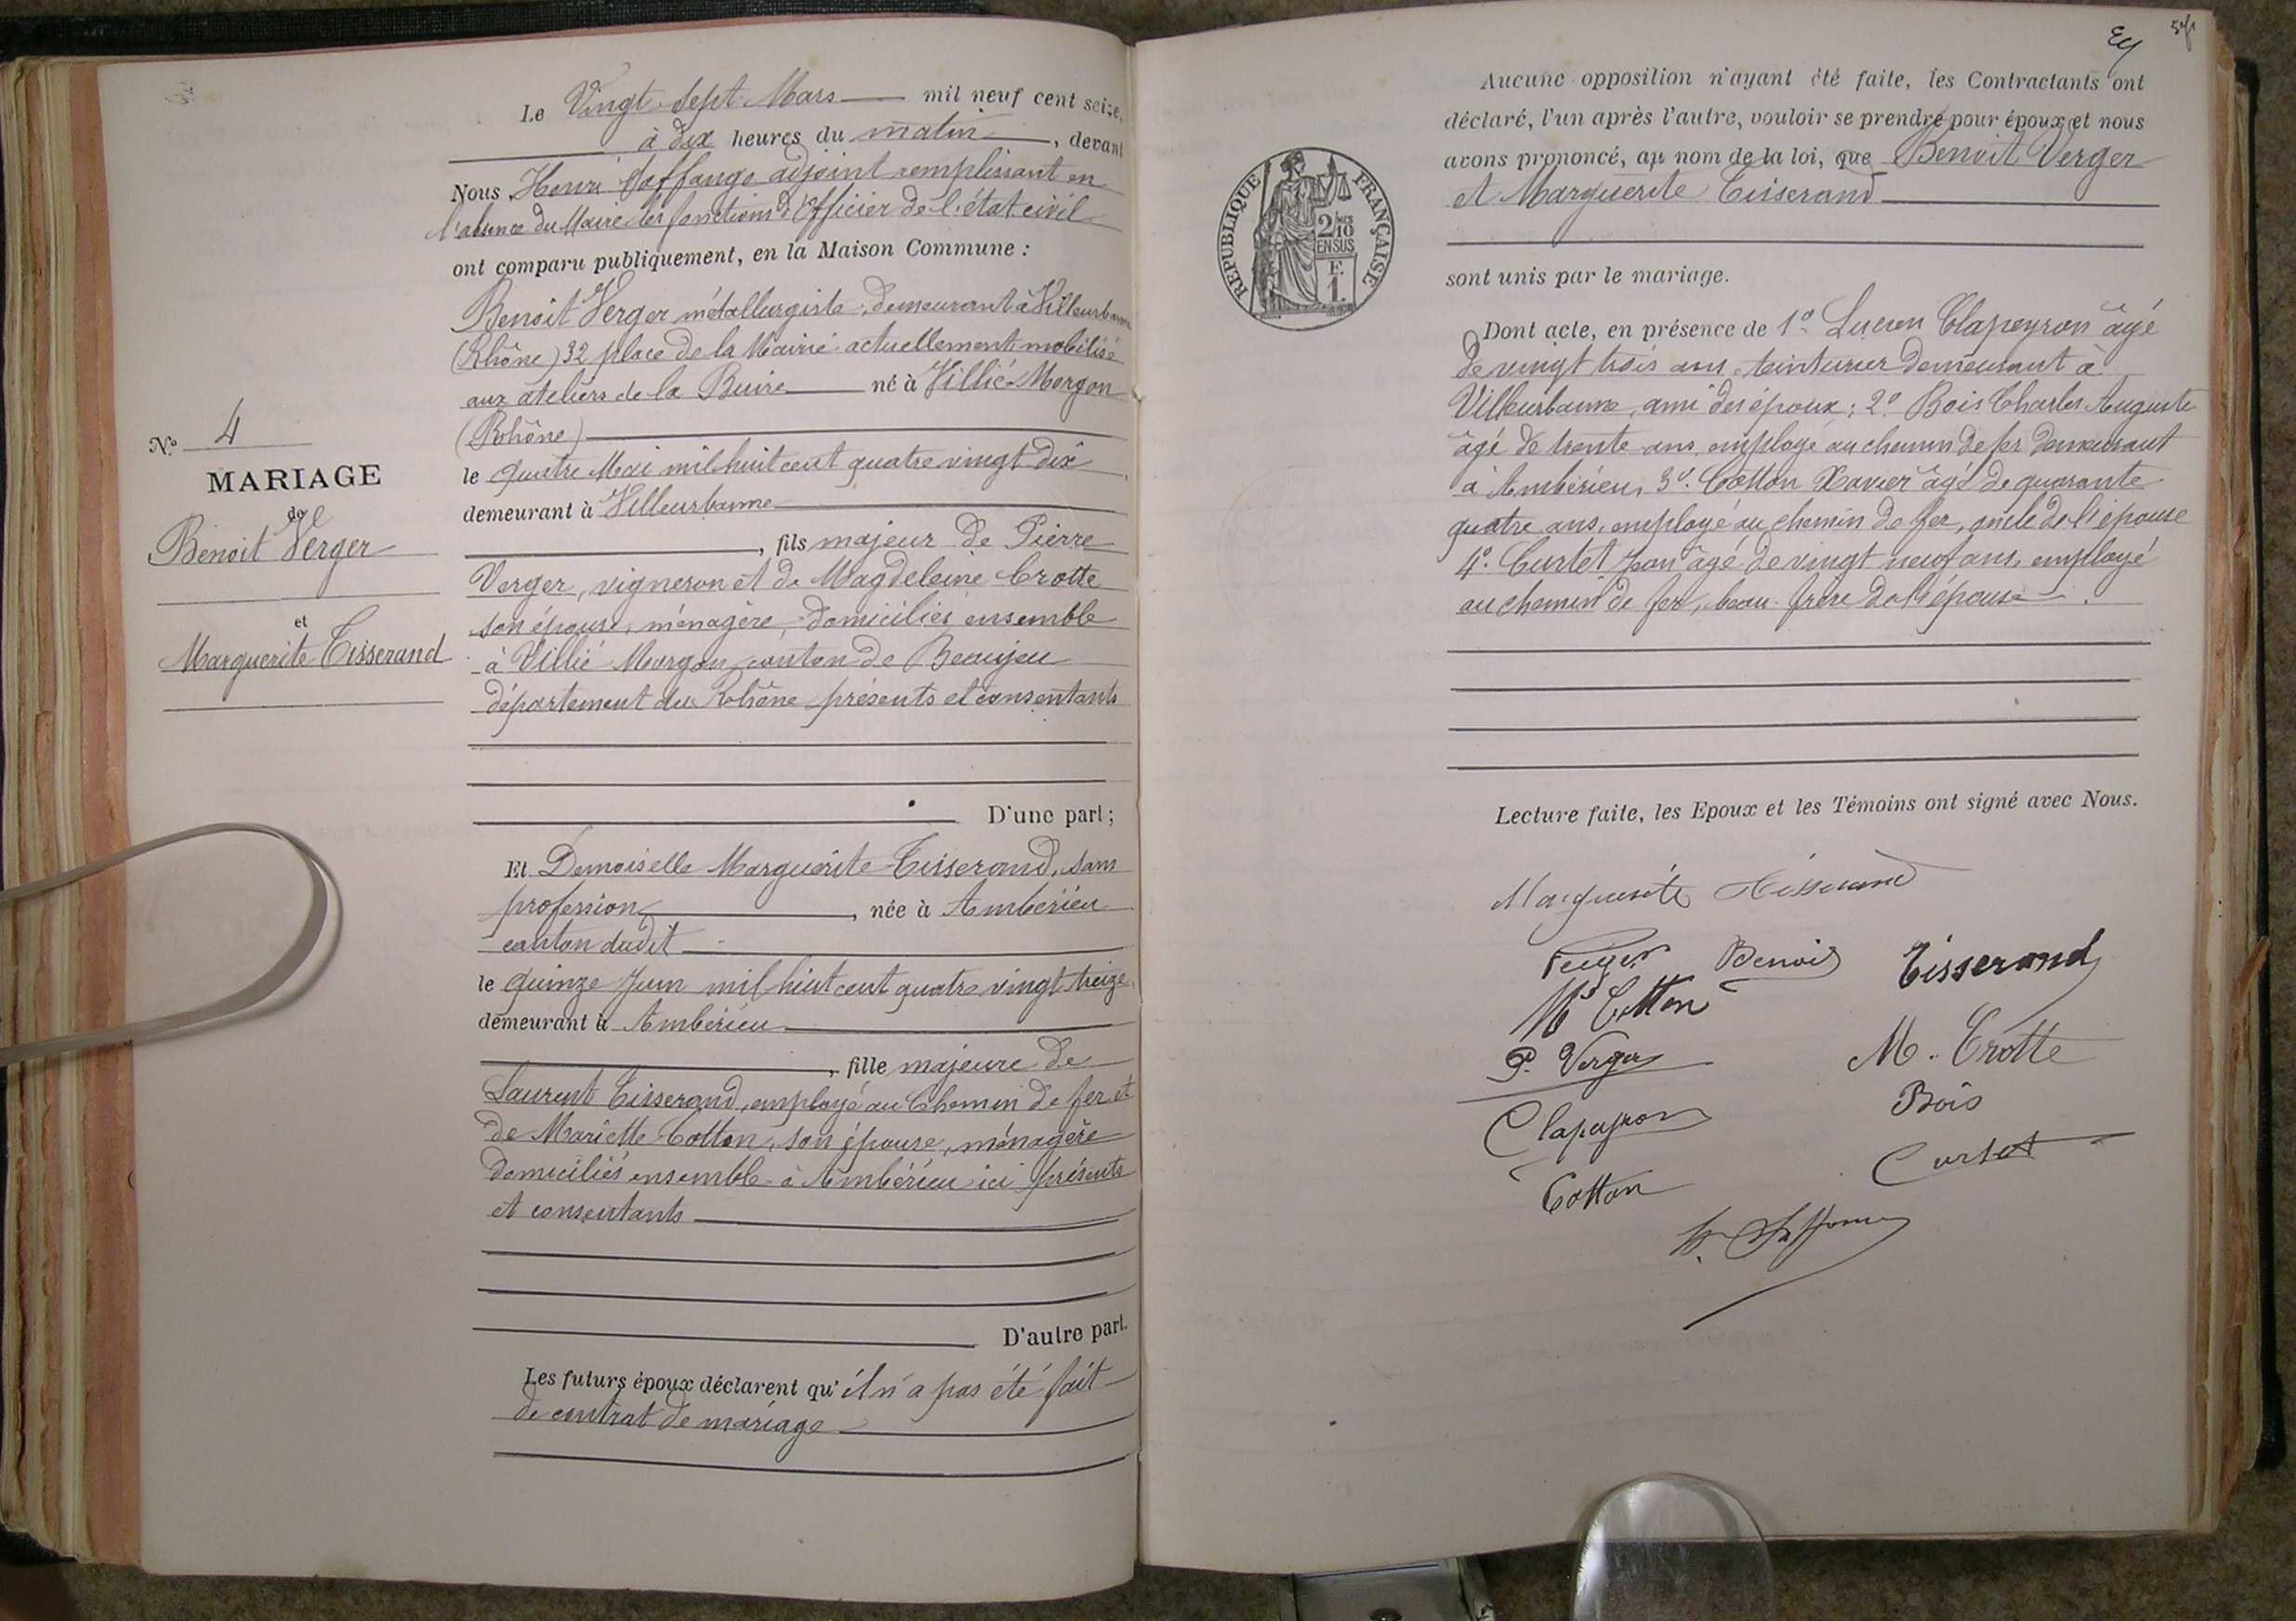 Le Vingt-sept Mars mil neuf cent seize,
à dix heures du matin, devant
Nous, Henri adjoint remplissant en
l'absence du Maire les fonctions d'Officier de l'état civil
ont comparu publiquement, en la Maison Commune :
Benoit Verger métallurgiste, demeurant à Villeurbanne
(Rhône) 32 place de la Mairie actuellement mobilisé
aux ateliers de la Buire né à Villié-Morgon
(Rhône)
le quatre Mai mil huit cent quatre vingt dix
demeurant à Villeurbanne
, fils majeur de Pierre
Verger, vigneron et de Magdeleine Crotte
son épouse, ménagère, domiciliés ensemble
à Villié Morgon, canton de Beaujeu
département du Rhône présents et consentants
D'une part ;
Et Demoiselle Marguerite Tisserand, sans
profession, née à Ambérieu
canton dudit
le quinze Juin mil huit cent quatre vingt treize,
demeurant à Ambérieu
, fille majeure de
Laurent Tisserand, employé au Chemin de fer et
de Mariette Cotton, son épouse, ménagère
domiciliés ensemble à Ambérieu ici présents
et consentants
D'autre part.
Les futurs époux déclarent qu'il n'a pas été fait
de contrat de mariage
No 4
MARIAGE
de
Benoit Verger
et
Marguerite Tisserand
54
Aucune opposition n'ayant été faite, les Contractants ont
déclaré, l'un après l'autre, vouloir se prendre pour époux et nous
avons prononcé, au nom de la loi, que Benoit Verger
et Marguerite Tisserand
sont unis par le mariage.
REPUBLIQUE FRANÇAISE
2/10
EN SUS
F.
1.
Dont acte, en présence de 1o Lucien Clapeyron âgé
de vingt trois ans, teinturier demeurant à
Villeurbanne, ami des époux ; 2o Bois Charles Auguste
âgé de trente ans, employé au chemin de fer demeurant
à Ambérieu, 3o. Cotton Xavier âgé de quarante
quatre ans, employé au chemin de fer, oncle de l'épouse
4o. Curtet âgé de vingt neuf ans, employé
au chemin de fer, beau-frère de l'épouse.
Lecture faite, les Epoux et les Témoins ont signé avec Nous.
Marguerite Tisserand
Verger Benoit Tisserand
Mte Cotton
P. Verger M. Crotte
Clapeyron Bois
Cotton Curtet